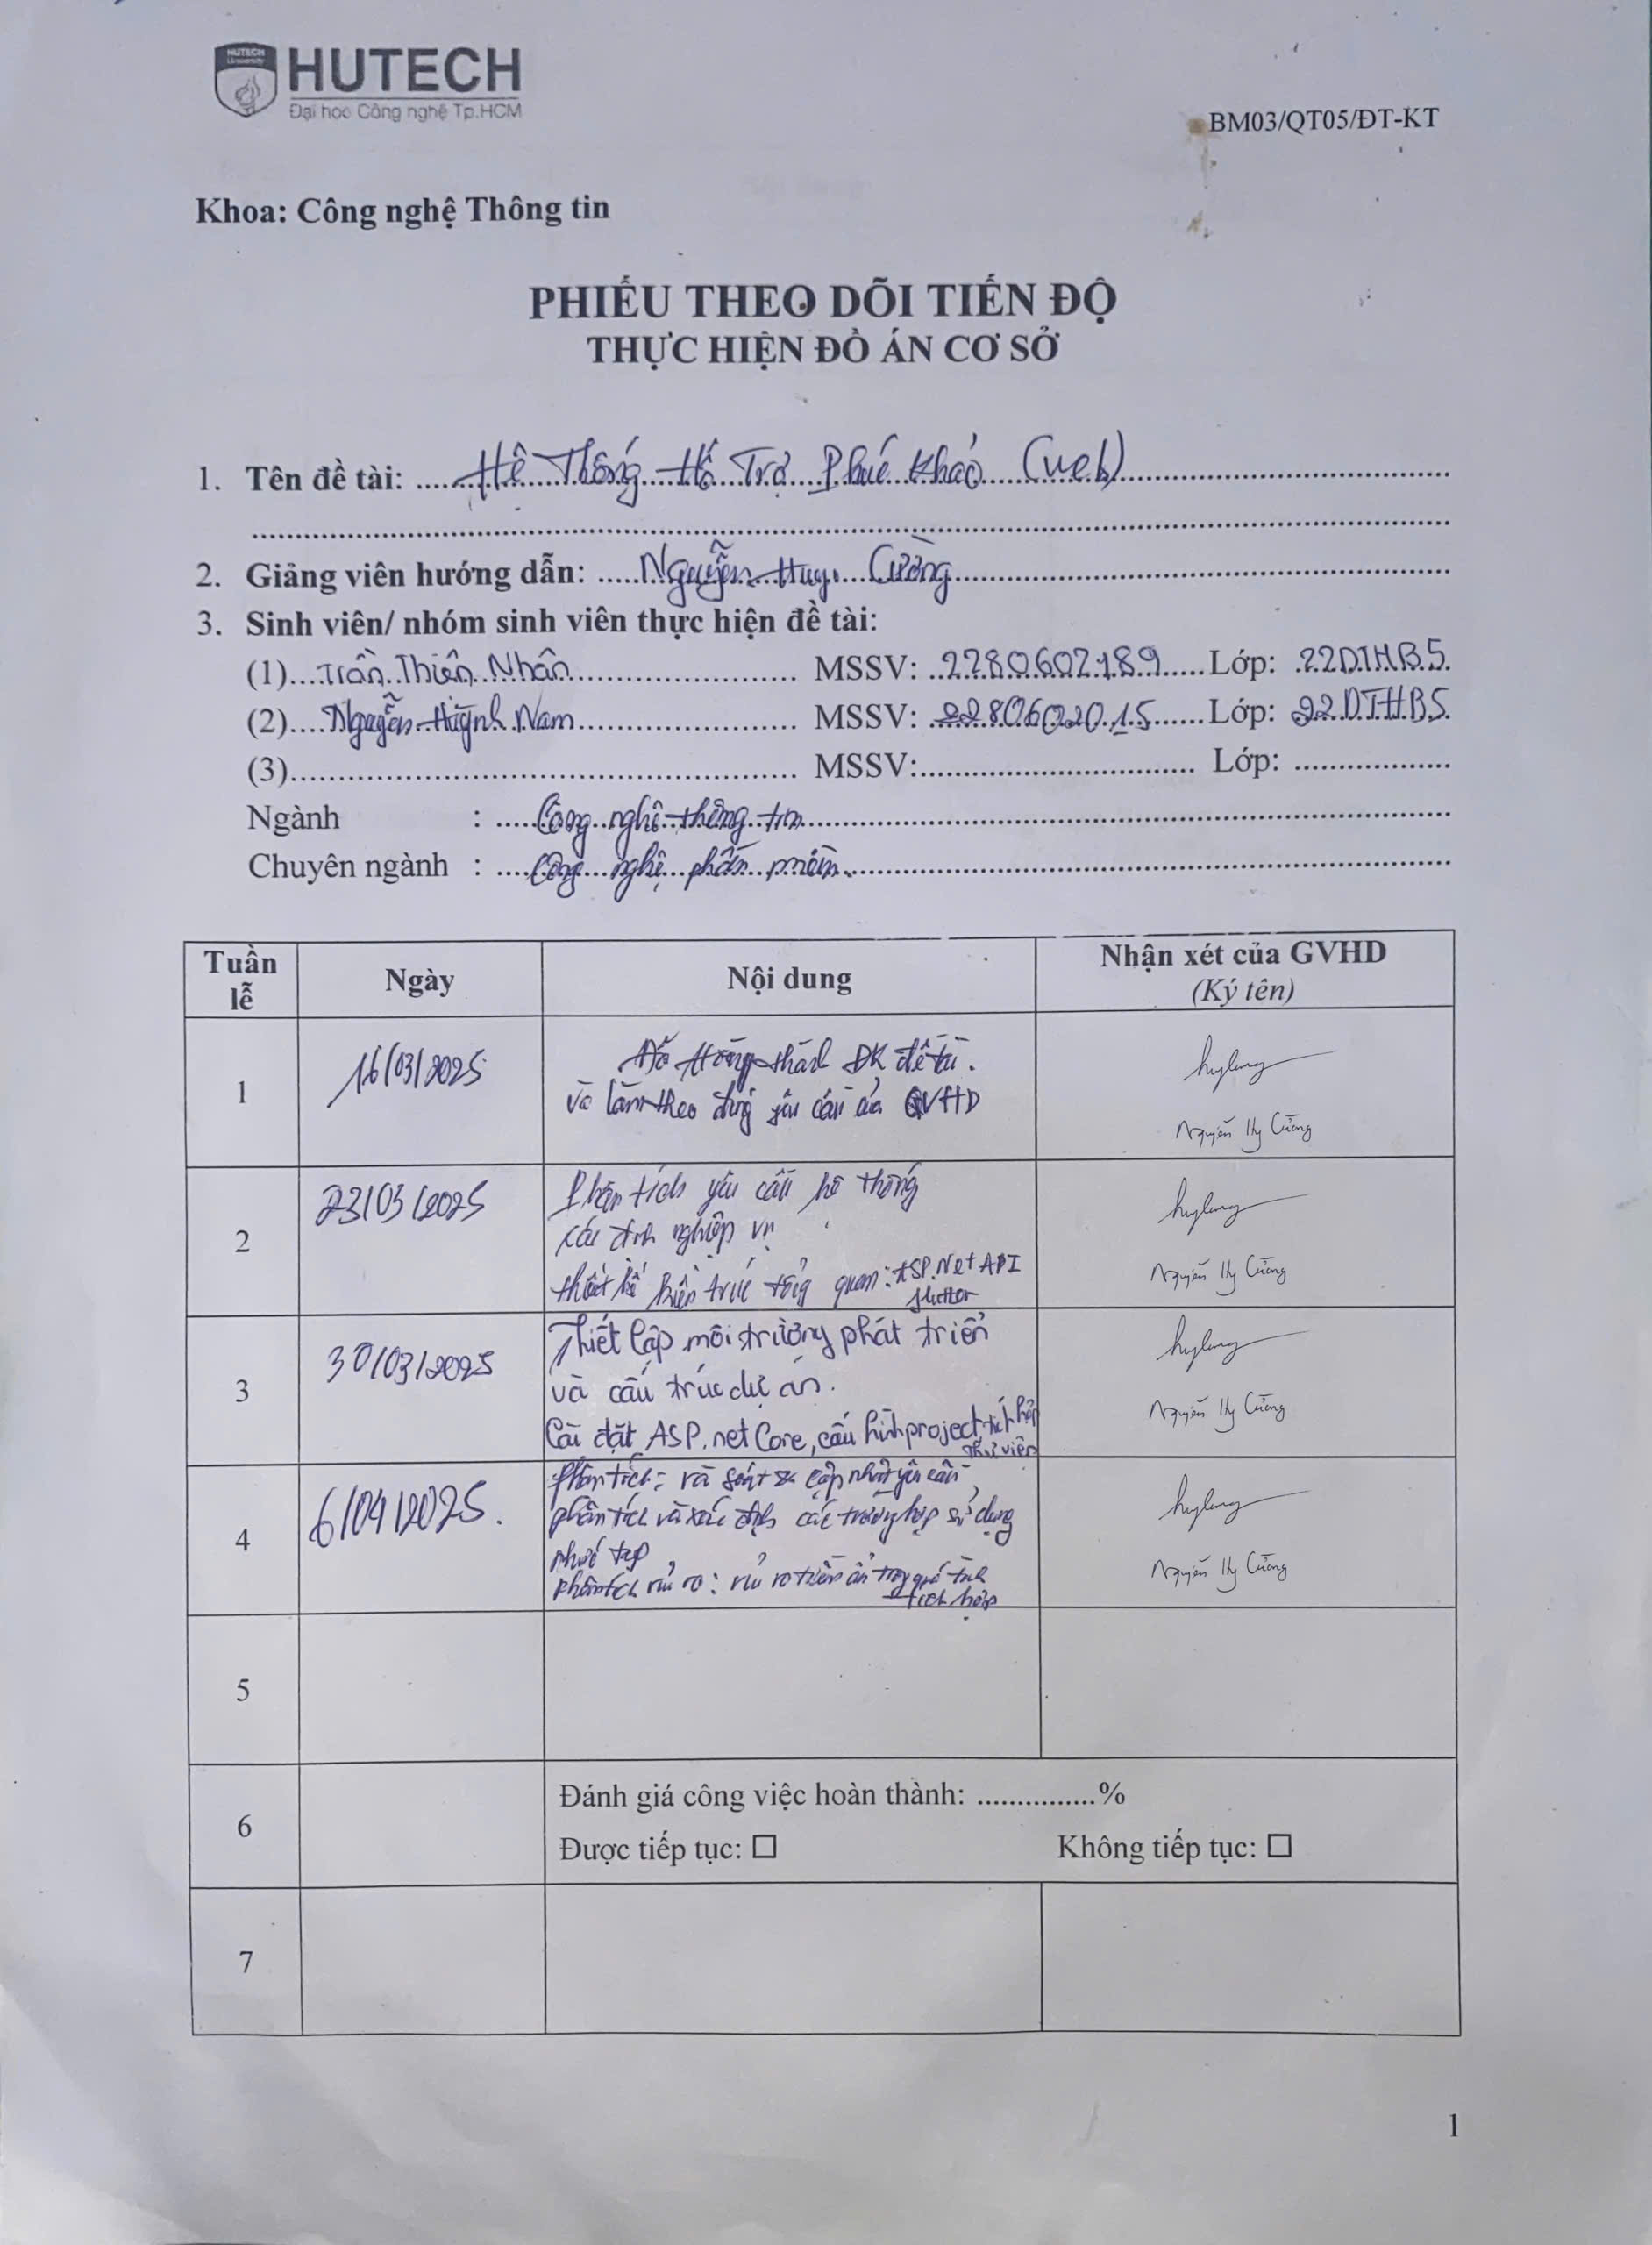 HUTECH
University
HUTECH
Đại học Công nghệ Tp.HCM
BM03/QT05/ĐT-KT
Khoa: Công nghệ Thông tin
PHIẾU THEO DÕI TIẾN ĐỘ
THỰC HIỆN ĐỒ ÁN CƠ SỞ
1. Tên đề tài: Hệ Thống Hỗ Trợ Phúc Khảo (web)
2. Giảng viên hướng dẫn: Nguyễn Huy Cường
3. Sinh viên/ nhóm sinh viên thực hiện đề tài:
(1) Trần Thiên Nhân MSSV: 2280602189 Lớp: 22DTHB5
(2) Nguyễn Huỳnh Nam MSSV: 2280602015 Lớp: 22DTHB5
(3) MSSV: Lớp:
Ngành : Công nghệ thông tin
Chuyên ngành : Công nghệ phần mềm
Tuần lễ Ngày Nội dung Nhận xét của GVHD
(Ký tên)
1 16/03/2025
ĐK đề tài.
và làm theo đúng yêu cầu của GVHD
Nguyễn Huy Cường
2 23/03/2025
Phân tích yêu cầu hệ thống
xác định nghiệp vụ
thiết kế kiến trúc tổng quan: ASP.Net API
flutter
Nguyễn Huy Cường
3 30/03/2025
Thiết lập môi trường phát triển
và cấu trúc dự án.
Cài đặt ASP.net Core, cấu hình project tích hợp
thư viện
Nguyễn Huy Cường
4 6/04/2025.
Phân tích: rà soát & cập nhật yêu cầu
phân tích và xác định các trường hợp sử dụng
phức tạp
phân tích rủi ro: rủi ro tiềm ẩn trong quá trình
tích hợp
Nguyễn Huy Cường
5
6 Đánh giá công việc hoàn thành: ...............%
Được tiếp tục: ☐ Không tiếp tục: ☐
7
1